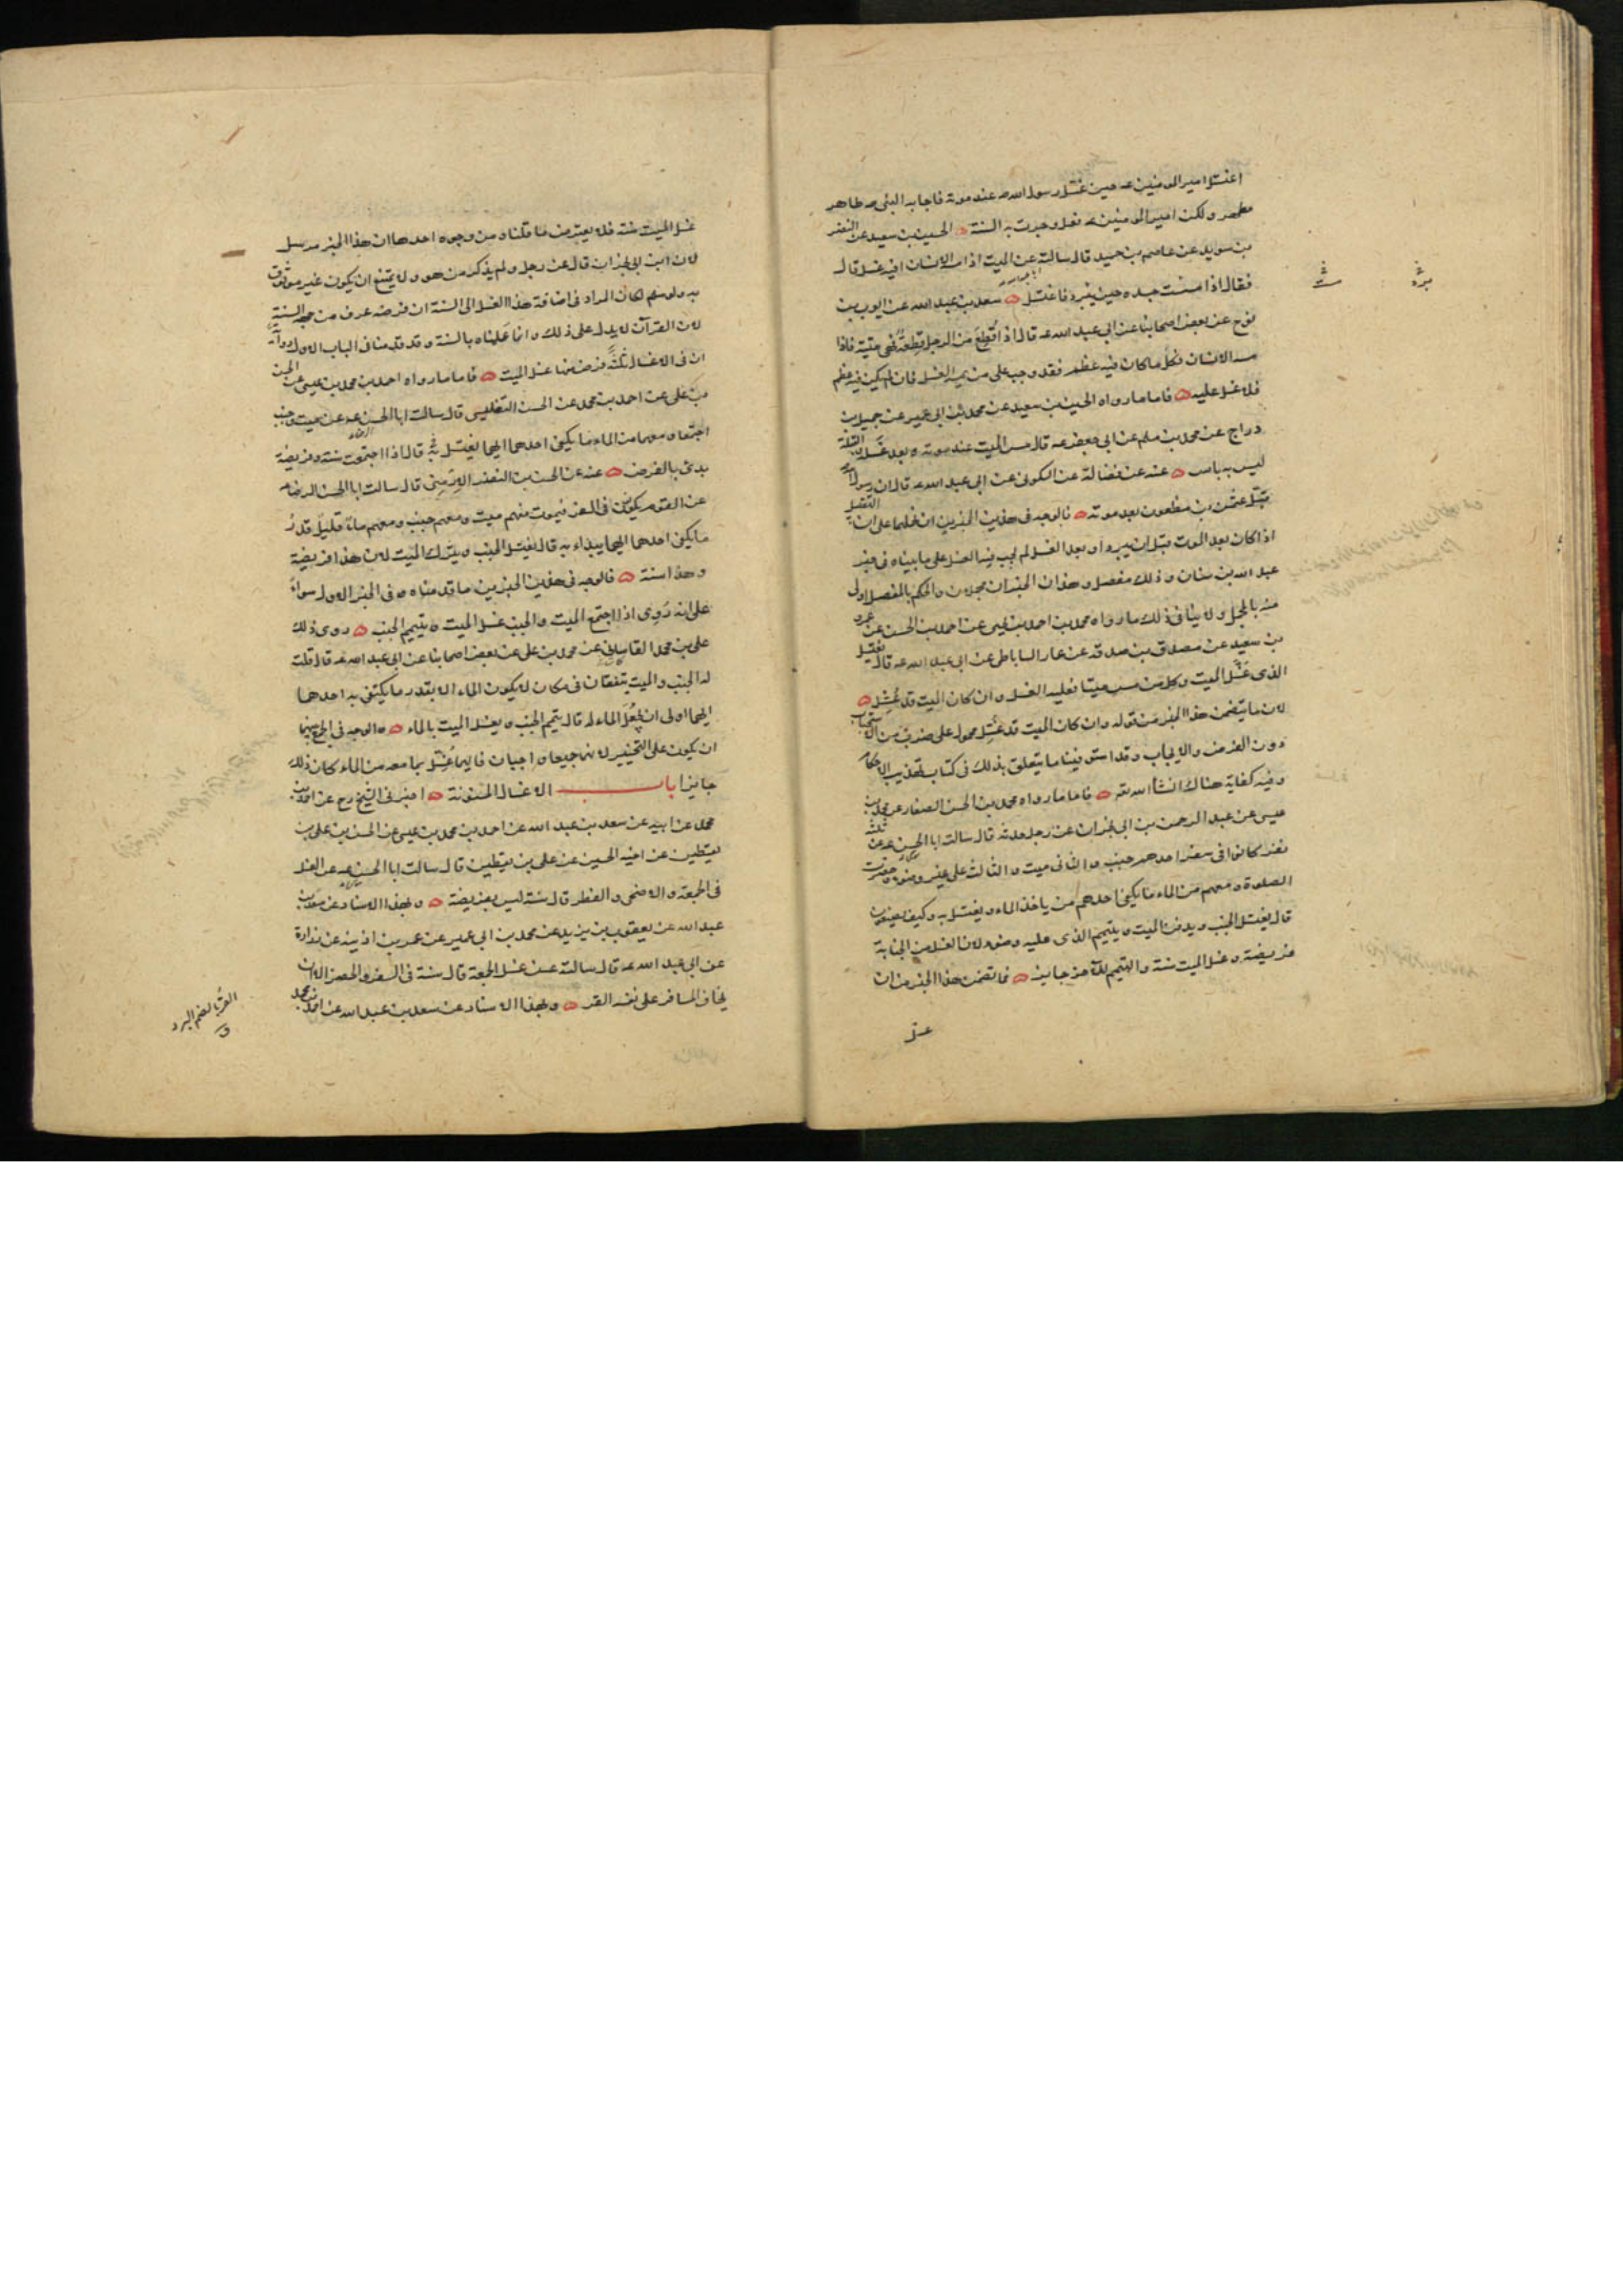 اغتسل امير المومنين عه حين غسل رسول الله صه عند موته فاجابه النبى صه طاهر
مطهر ولكن امير المومنين عه فعل وجرت به السنة ه الحسين بن سعيد عن النضر
بن سويد عن عاصم بن حميد قال سالته عن الميت اذا مسه الانسان افيه غسل قال
فقال اذا مسست جسده حين يبرد فاغتسل ه سعد بن عبد الله عن ايوب بن
نوح عن بعض اصحابنا عن ابى عبد الله عه قال اذا قُطِعَ من الرجل قِطعةٌ فهى ميتة فاذا
مسه الانسان فكلّ ما كان فيه عظم فقد وجب على من يمسه الغسل فان لم يكن فيه عظم
فلا غسل عليه ه فاما ما رواه الحسين بن سعيد عن محمد بن ابى عمير عن جميل بن
دراج عن محمد بن مسلم عن ابى جعفر عه قال مس الميت عند موته وبعد غسله والقبلة
ليس به باس ه عنه عن فضالة عن السكونى عن ابى عبد الله عه قال ان رسول الله
قبّل عثمن بن مظعون بعد موته ه فالوجه فى هذين الخبرين ان نحملهما على انه التقبيل
اذا كان بعد الموت قبل ان يبرد او بعد الغسل لم يجب فيه الغسل على ما بيناه فى خبر
عبد الله بن سنان وذلك مفصل وهذان الخبران مجملان والحكم بالمفصل اولى
منه بالمجمل ولا ينافى ذلك ما رواه محمد بن احمد بن يحيى عن احمد بن الحسن عن عمرو
بن سعيد عن مصدق بن صدقه عن عمار الساباطى عن ابى عبد الله عه قال يغتسل
الذى غسّل الميت وكل من مس ميتا فعليه الغسل وان كان الميت قد غُسِّل ه
لان ما يتضمن هذا الخبر من قوله وان كان الميت قد غسّل محمول على ضرب من الاستحباب
دون الفرض والايجاب وقد استوفينا ما يتعلق بذلك فى كتاب تهذيب الاحكام
وفيه كفاية هناك انشاالله تعه ه فاما ما رواه محمد بن الحسن الصفار عن محمد بن
عيسى عن عبد الرحمن بن ابى نجران عن رجل حدثه قال سالت ابا الحسن عه عن ثلثة
نفر كانوا فى سفر احدهم جنب والثانى ميت والثالث على غير وضوء وحضرت
الصلوة ومعهم من الماء ما يكفى احدهم من ياخذ الماء ويغتسل به وكيف يصنعون
قال يغتسل الجنب ويدفن الميت ويتيمم الذى عليه وضوء لان الغسل من الجنابة
فريضة وغسل الميت سنة والتيمم للآخر جايز ه فما تضمن هذا الخبر من ان
غسل
غسل الميت سنة فلا يعترض ما قلناه من وجوه احدها ان هذا الخبر مرسل
لان ابن ابى نجران قال عن رجل ولم يذكر من هو ولا يمتنع ان يكون غير موثوق
به ولو سلم لكان المراد فى اضافة هذا الغسل الى السنة ان فرضه عرف من جهة السنة
لان القرآن لا يدل على ذلك وانما عَلمناه بالسنة وقد قدمنا فى الباب الاول رواية
ان فى الاغسال ثلثةً فرض منها غسل الميت ه فاما ما رواه احمد بن محمد بن عيسى عن الحسن
بن على عن احمد بن محمد عن الحسن التفليسى قال سالت ابا الحسن عه عن ميت وجنب
اجتمعا ومعهما من الماء ما يكفى احدهما ايهما يغتسل به قال اذا اجتمعت سنة وفريضة
بدئ بالفرض ه عنه عن الحسن بن النضر الارمنى قال سالت ابا الحسن الرضا عه
عن القوم يكونون فى السفر فيموت منهم ميت ومعهم جنب ومعهم ماءٌ قليلٌ قدرُ
ما يكفى احدهما ايهما يبداء به قال يغتسل الجنب ويترك الميت لان هذا فريضة
وهذا سنة ه فالوجه فى هذين الخبرين ما قدمناه فى الخبر الاول سواءً
على انه رُوِى اذا اجتمع الميت والجنب غسل الميت ويتيمم الجنب ه روى ذلك
على بن محمد القاسانى عن محمد بن على عن بعض اصحابنا عن ابى عبد الله عه قال قلت
له الجنب والميت يتفقان فى مكان لا يكون الماء الا بقدر ما يكتفى به احدهما
ايهما اولى ان يُجعَلَ الماء له قال يتيمم الجنب ويغسل الميت بالماء ه والوجه فى الجمع بينهما
ان يكون على التخيير لانهما جميعا واجبان فايهما غُسِّل بما معه من الماء كان ذلك
جايزا باب الاغسال المسنونة ه اخبرنى الشيخ رح عن احمد بن
محمد عن ابيه عن سعد بن عبد الله عن احمد بن محمد بن عيسى عن الحسن بن على بن
يقطين عن اخيه الحسين عن على بن يقطين قال سالت ابا الحسن عه عن الغسل
فى الجمعة والاضحى والفطر قال سنة ليس بفريضة ه وبهذا الاسناد عن سعد بن
عبد الله عن يعقوب بن يزيد عن محمد بن ابى عمير عن عمر بن اذينه عن زرارة
عن ابى عبد الله عه قال سالته عن غسل الجمعة قال سنة فى السفر والحضر الا ان
يخاف المسافر على نفسه القر ه وبهذا الاسناد عن سعد بن عبد الله عن احمد بن محمد
القرّ بالضم البرد